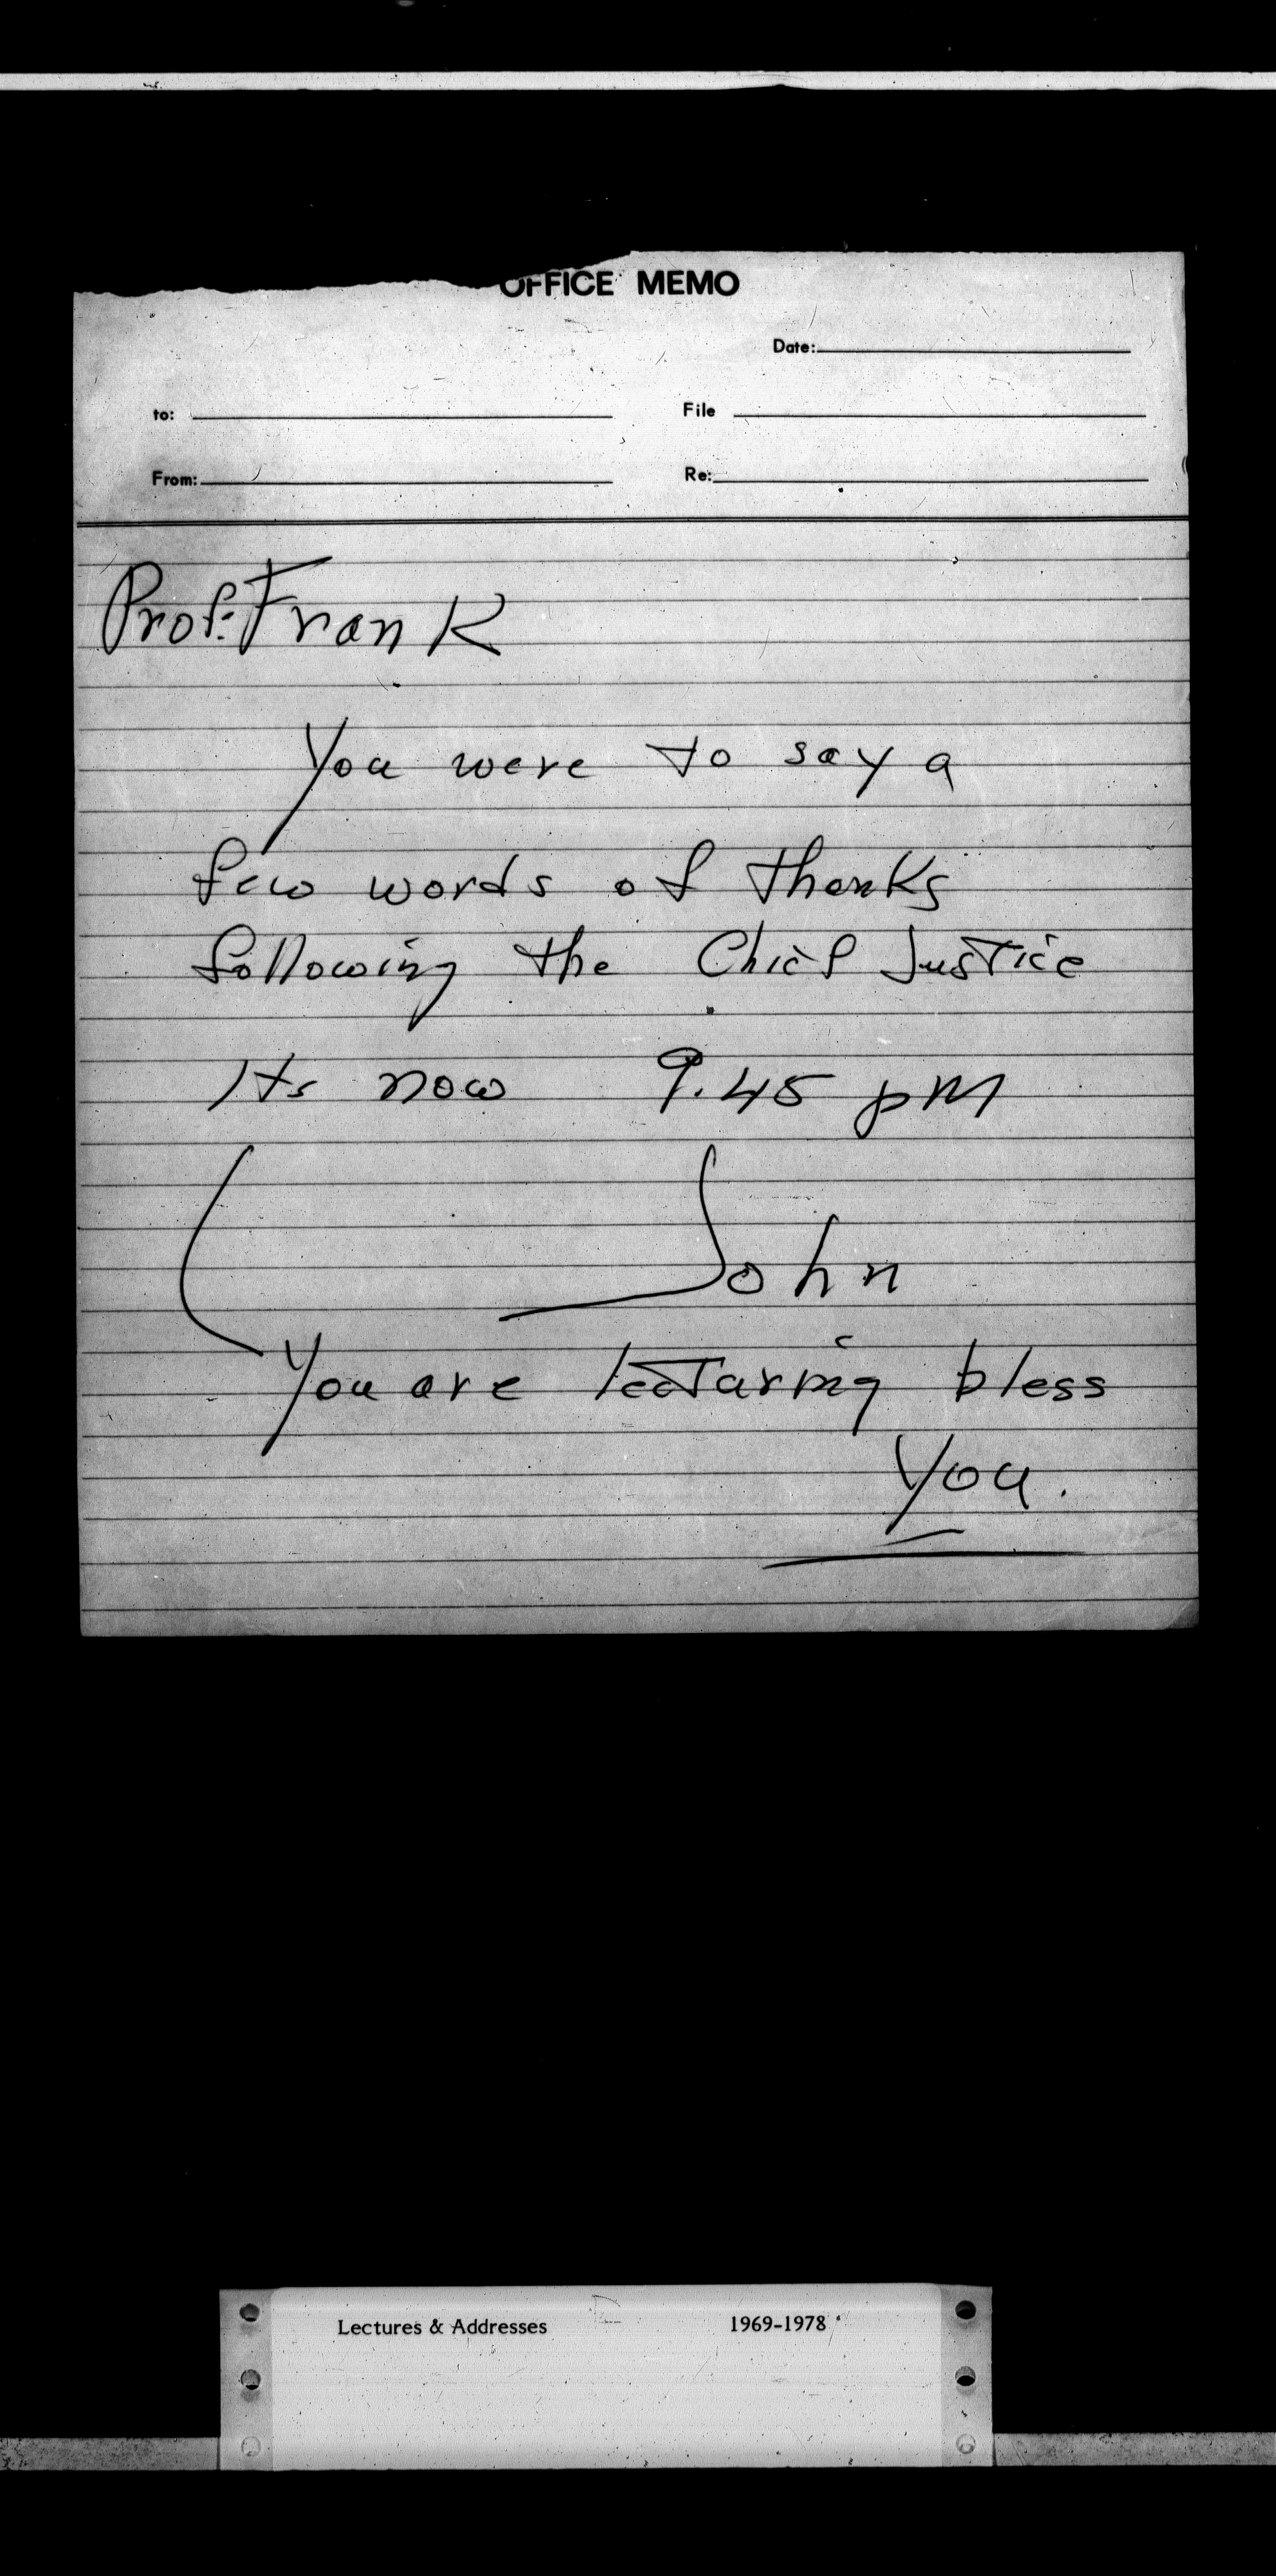 OFFICE MEMO
Date:
to: File
From: Re:
Prof. Frank
You were to say a
few words of thanks
following the Chief Justice
Its now 9.45 pm
John
You are lecturing bless
you.
Lectures & Addresses 1969-1978